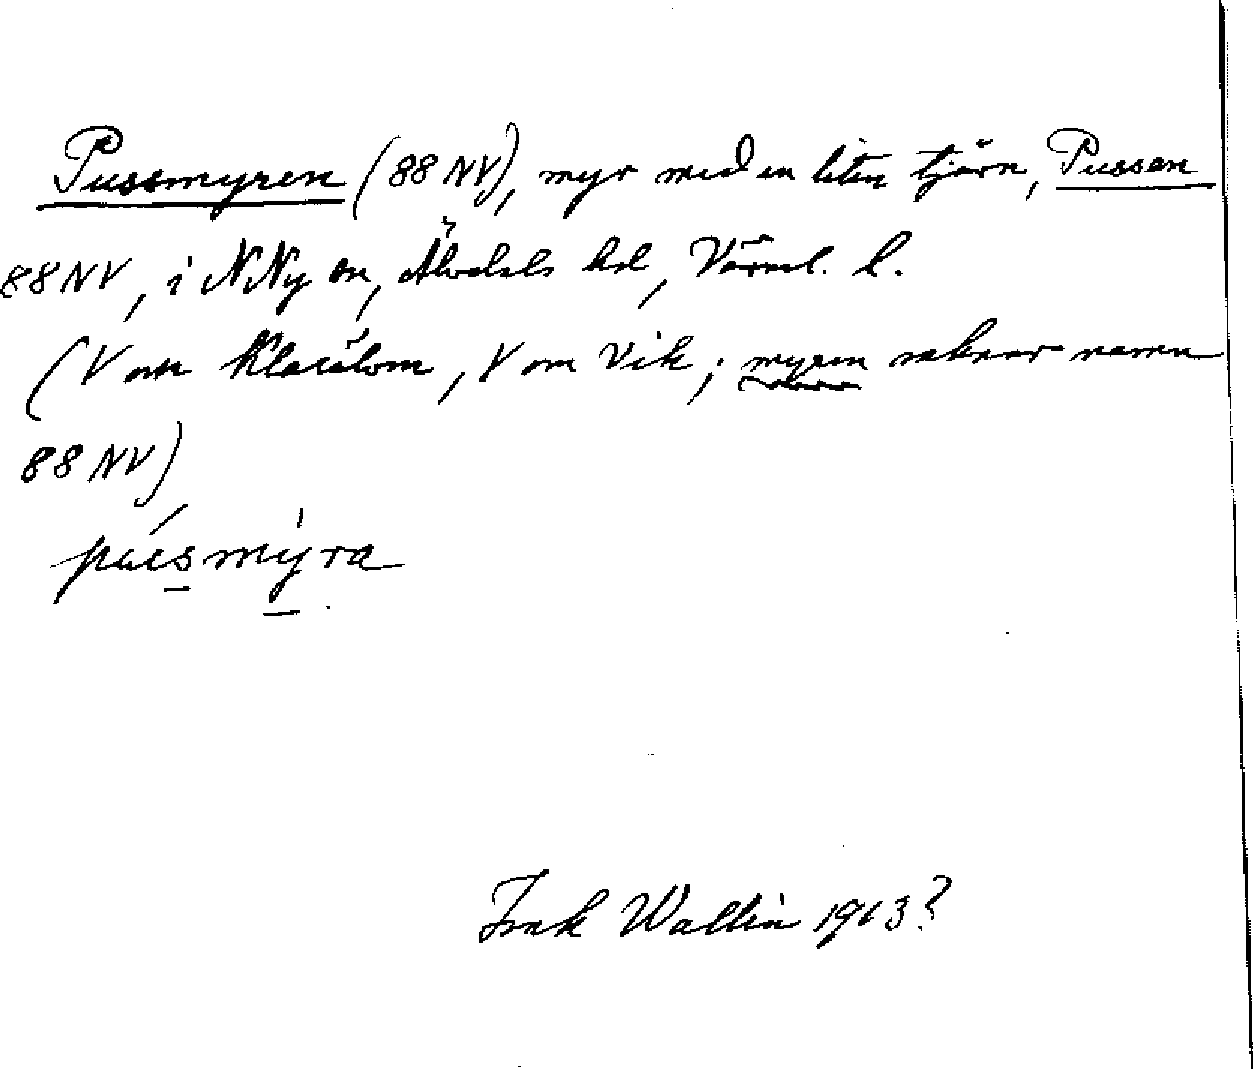 Pussmyren (88 NV), myr med en liten tjärn, Pussen
88 NV, i N Ny sn, Älvdals hd, Värml. l.
(V om Klarälven, V om Vik; myren saknar namn
88 NV)
pusmyra
Wallin 1913?